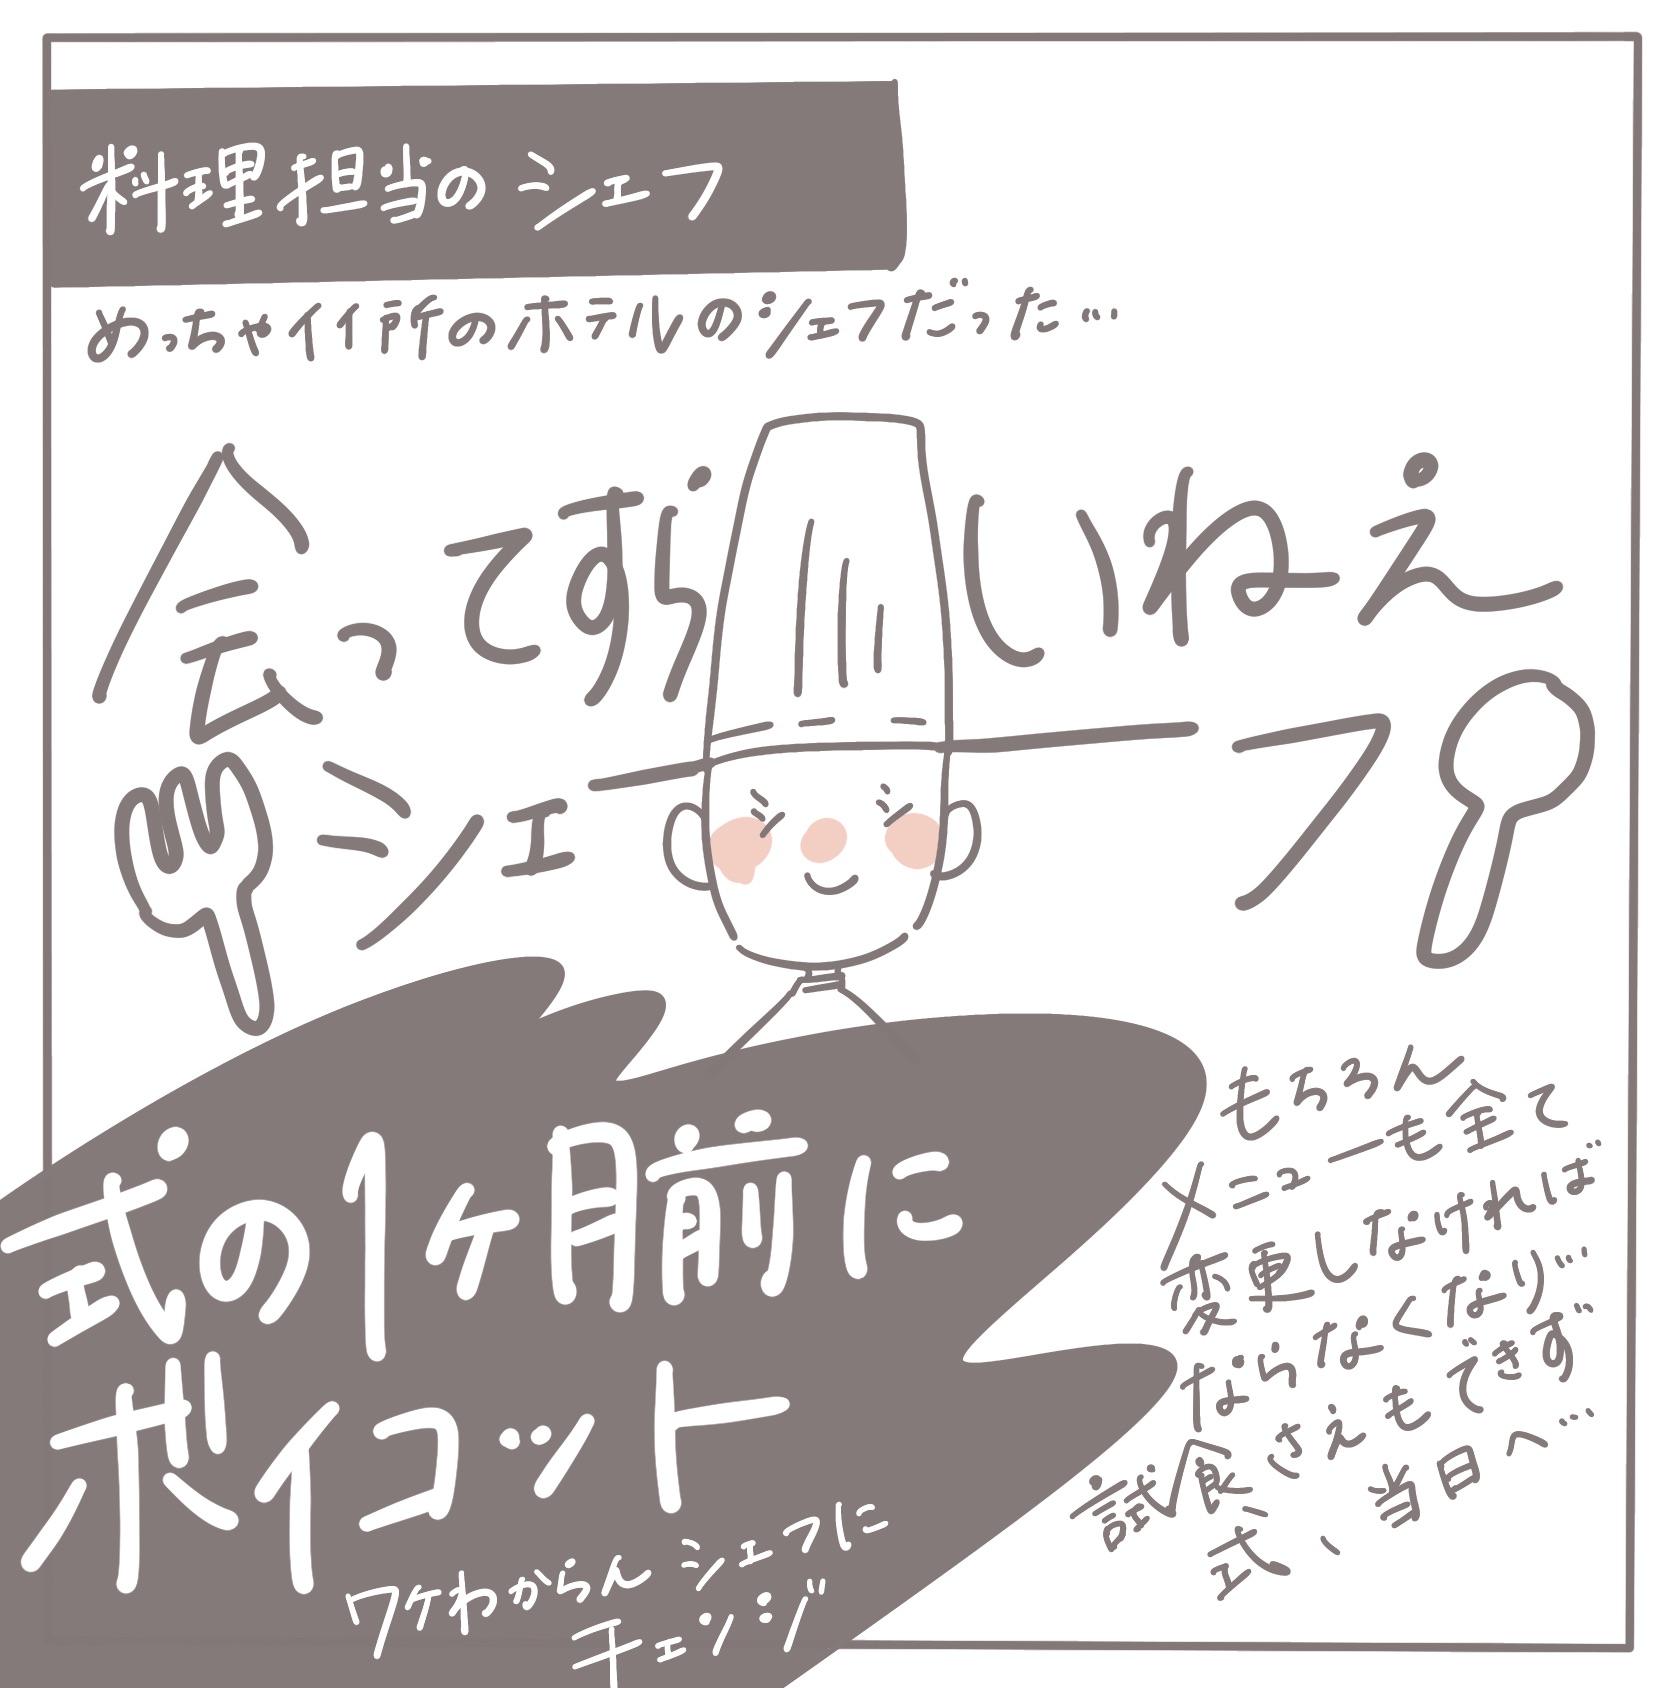 料理担当のシェフ
めっちゃイイ所のホテルのシェフだった…
会ってすらいねえ
シェフ
式の1ヶ月前に
ボイコット
ワケわからんシェフに
チェンジ
もちろん
メニューも全て
変更しなければ
ならなくなり…
試食さえもできず
式、当日へ…